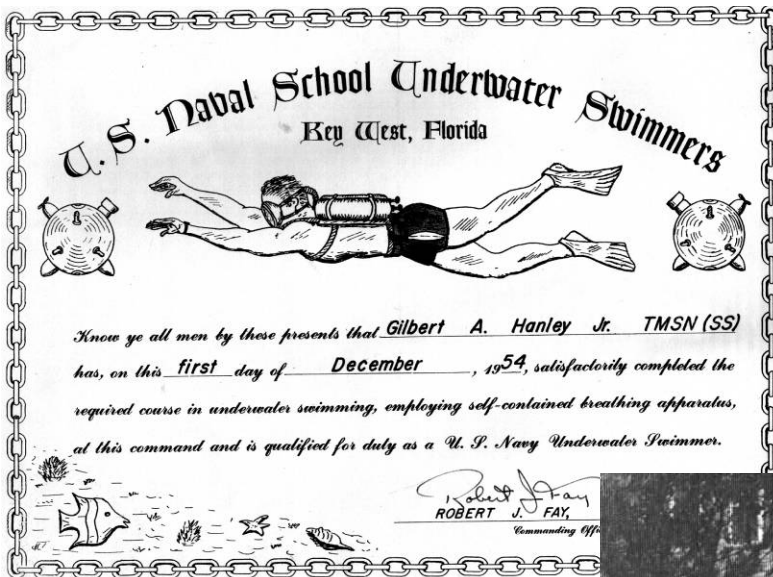 U.S. Naval School Underwater Swimmers
Key West, Florida
Know ye all men by these presents that Gilbert A. Hanley Jr. TMSN (SS)
has, on this first day of December, 1954, satisfactorily completed the
required course in underwater swimming, employing self-contained breathing apparatus,
at this command and is qualified for duty as a U. S. Navy Underwater Swimmer.
Robert J. Fay
ROBERT J. FAY,
Commanding